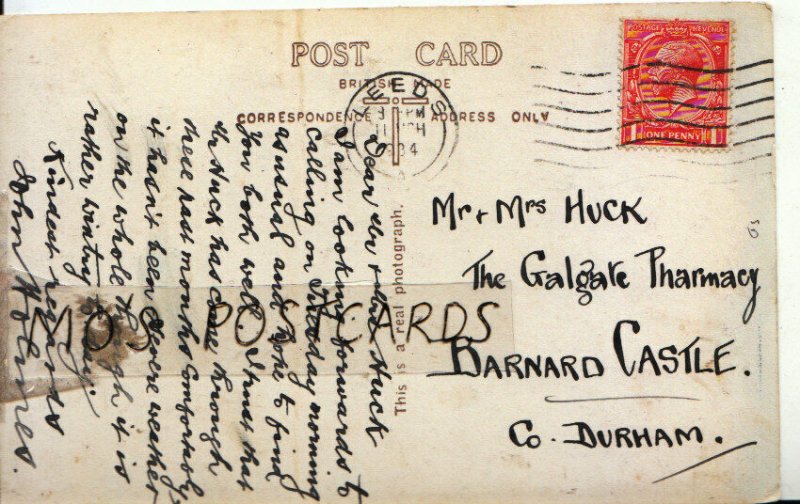 POST CARD
BRITISH MADE
CORRESPONDENCE ADDRESS ONLY
LEEDS
1934
POSTAGE REVENUE
ONE PENNY
This is a real photograph.
Dear Mr & Mrs Huck
I am looking forwards to
calling on Tuesday morning
as usual and hope to find
you both well. I trust that
Mr Huck has come through
these past months comfortably
it hasn't been severe weather
on the whole though it is
rather wintry to-day.
Kindest regards
John Holmes.
Mr & Mrs HUCK
The Galgate Pharmacy
BARNARD CASTLE.
Co. DURHAM.
MOS POSTCARDS